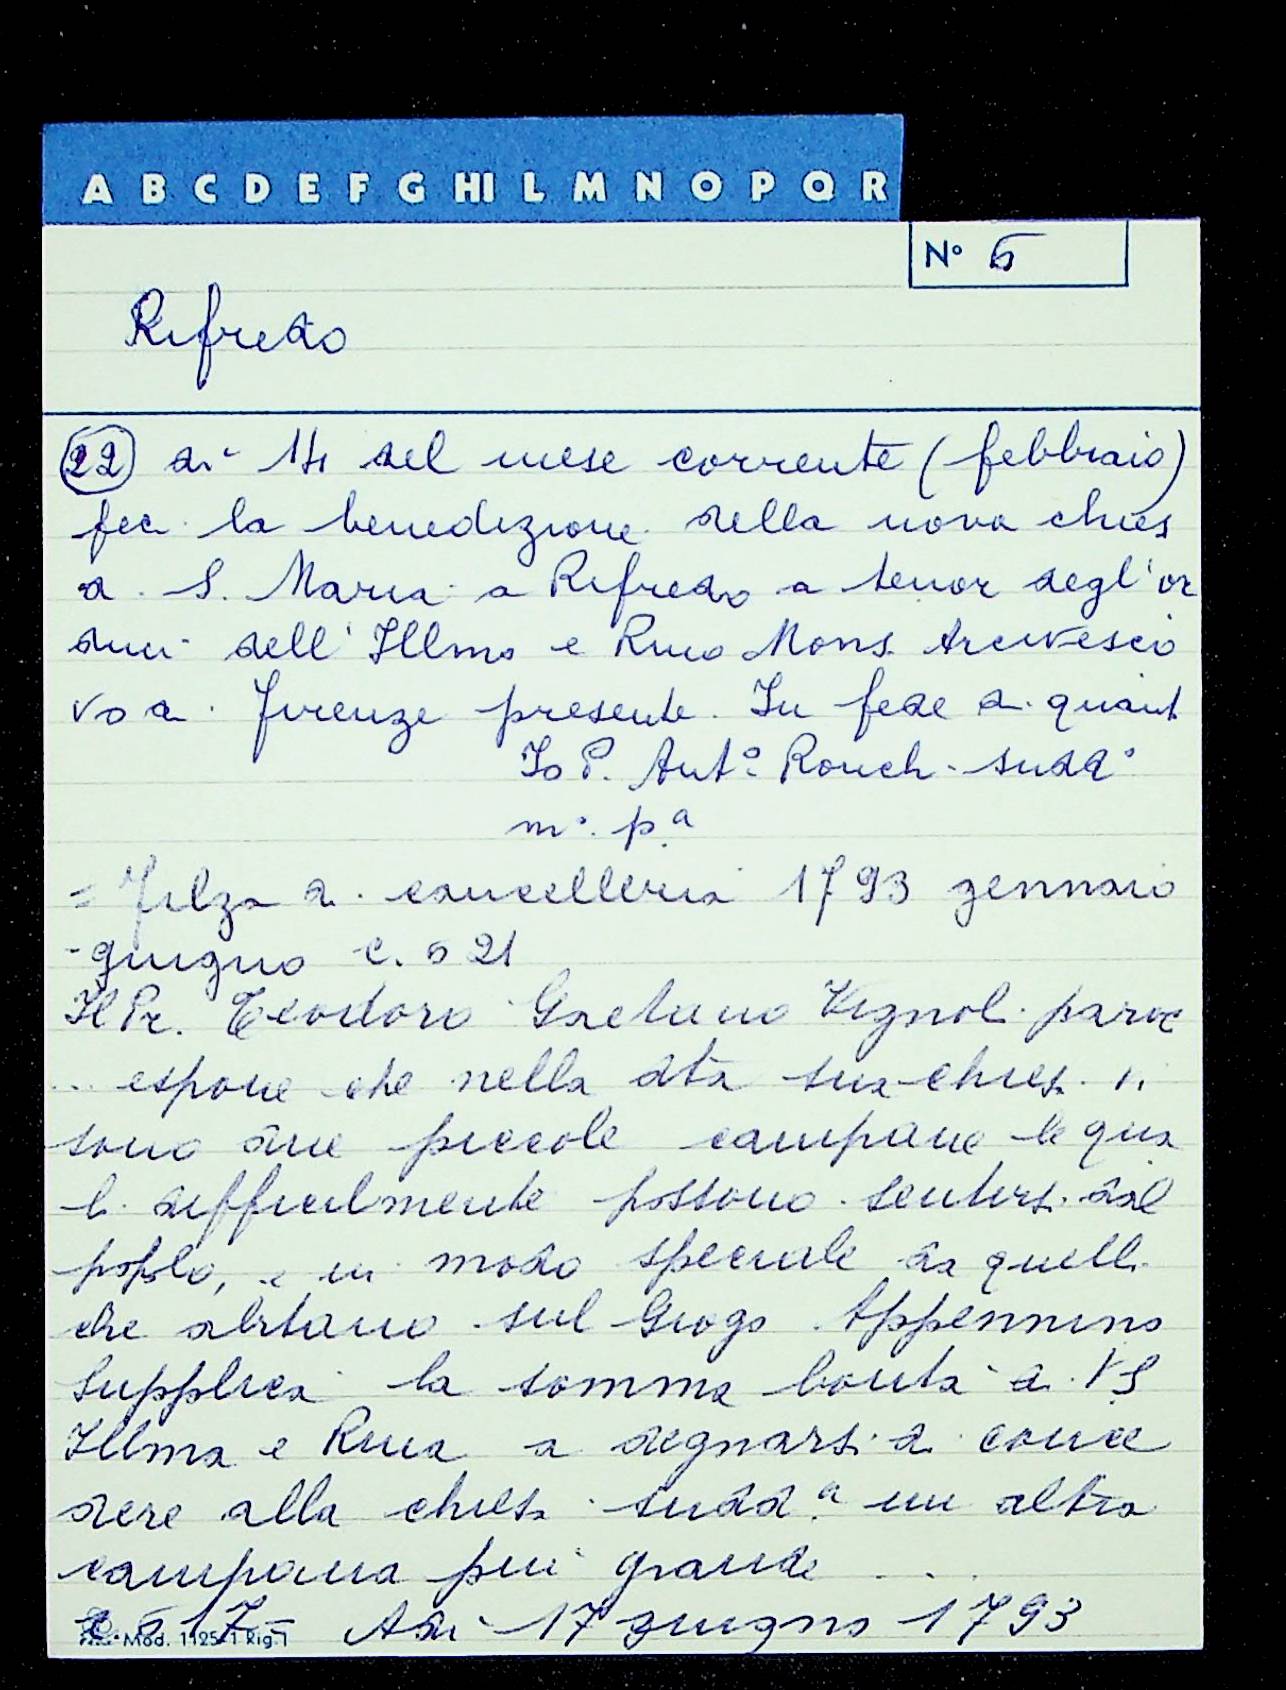 A B C D E F G HI L M N O P Q R
N° 5
Rifredo
22 dì 14 del mese corrente (febbraio)
feci la benedizione della nova chies
a S. Maria a Rifredo a tenor degl'or
dini dell'Illmo e Rmo Mons Arcivesco
vo di Firenze presente. In fede di quant
Io P. Ant.° Ronch- sudd°
m.° p.a
= Filza di cancelleria 1793 gennaio
-giugno c. 521
Il Pr. Teodoro Gaetano Vignoli paroc
... espone che nella dta sua chiesa vi
sono due piccole campane le qua
li difficilmente possono sentirsi dal
popolo, e in modo speciale da quelli
che abitano sul Giogo Appennino
Supplica la somma bontà di VS
Illma e Rma a degnarsi di conce
dere alla chiesa sudd.a un altra
campana più grande ...
c. 517 Adì 17 giugno 1793
Mod. 1125/1 Rig.1